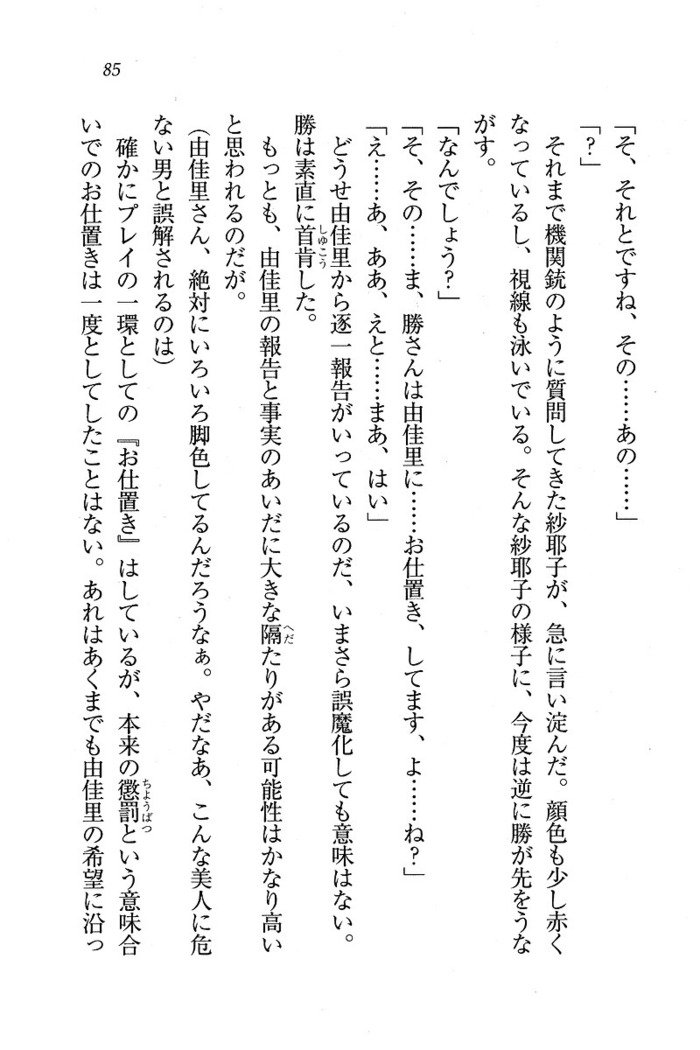 85
「そ、それとですね、その……あの……」
「？」
それまで機関銃のように質問してきた紗耶子が、急に言い淀んだ。顔色も少し赤く
なっているし、視線も泳いでいる。そんな紗耶子の様子に、今度は逆に勝が先をうな
がす。
「なんでしょう？」
「そ、その……ま、勝さんは由佳里に……お仕置き、してます、よ……ね？」
「え……あ、ああ、えと……まあ、はい」
どうせ由佳里から逐一報告がいっているのだ、いまさら誤魔化しても意味はない。
勝は素直に首肯しゅこうした。
もっとも、由佳里の報告と事実のあいだに大きな隔へだたりがある可能性はかなり高い
と思われるのだが。
（由佳里さん、絶対にいろいろ脚色してるんだろうなぁ。やだなあ、こんな美人に危
ない男と誤解されるのは）
確かにプレイの一環としての『お仕置き』はしているが、本来の懲罰ちようばつという意味合
いでのお仕置きは一度としてしたことはない。あれはあくまでも由佳里の希望に沿っ